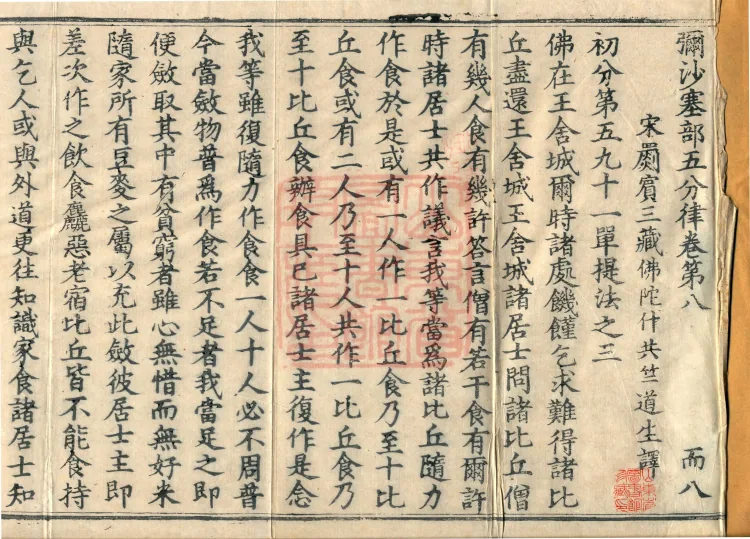 彌沙塞部五分律卷第八 而八
宋罽賓三藏佛陀什共竺道生譯
初分第五九十一單提法之三
佛在王舍城爾時諸處饑饉乞求難得諸比
丘盡還王舍城王舍城諸居士問諸比丘僧
有幾人食有幾許答言僧有若干食有爾許
時諸居士共作議言我等當爲諸比丘隨力
作食於是或有一人作一比丘食乃至十比
丘食或有二人乃至十人共作一比丘食乃
至十比丘食辦食具已諸居士主復作是念
我等雖復隨力作食食一人十人必不周普
今當斂物普爲作食若不足者我當足之即
便斂取其中有貧窮者雖心無惜而無好米
隨家所有豆麥之屬以充此斂彼居士主即
差次作之飲食麤惡老宿比丘皆不能食持
與乞人或與外道更往知識家食諸居士知